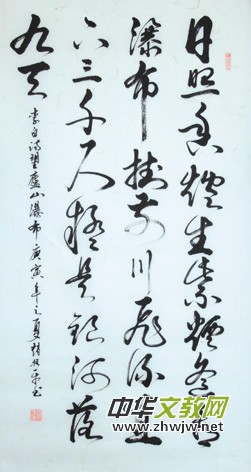 日照香爐生紫煙遥看
瀑布掛前川飛流直
下三千尺疑是銀河落
九天
李白詩望廬山瀑布庚寅年之夏
中华文教网
www.zhwjw.net